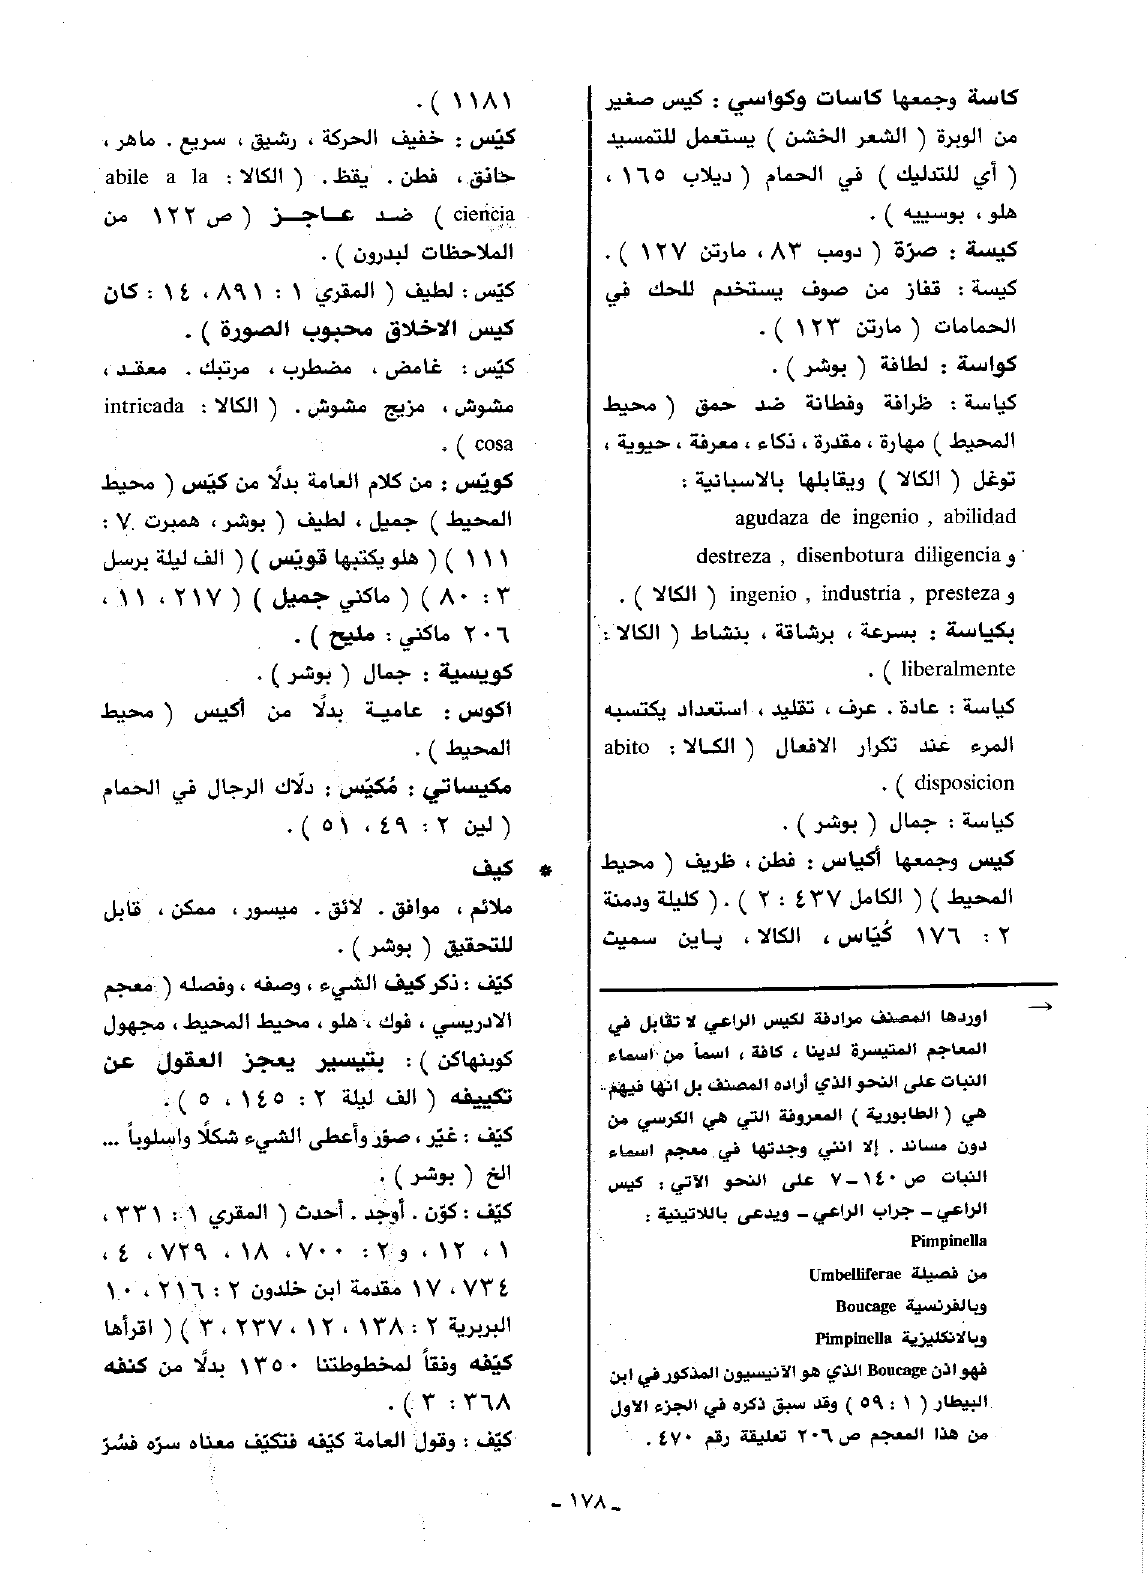 كاسة وجمعها كاسات وكواسي : كيس صغير
من الوبرة ( الشعر الخشن ) يستعمل للتمسيد
( أي للتدليك ) في الحمام ( ديلاب ١٦٥ ،
هلو ، بوسييه ) .
كيسة : صرّة ( دومب ٨٣ ، مارتن ١٢٧ ) .
كيسة : قفاز من صوف يستخدم للحك في
الحمامات ( مارتن ١٢٣ ) .
كواسة : لطافة ( بوشر ) .
كياسة : ظرافة وفطانة ضد حمق ( محيط
المحيط ) مهارة ، مقدرة ، ذكاء ، معرفة ، حيوية ،
توغل ( الكالا ) ويقابلها بالاسبانية :
agudaza de ingenio , abilidad
و destreza , disenbotura diligencia
و ingenio , industria , presteza ( الكالا ) .
بكياسة : بسرعة ، برشاقة ، بنشاط ( الكالا :
liberalmente ) .
كياسة : عادة . عرف ، تقليد ، استعداد يكتسبه
المرء عند تكرار الافعال ( الكالا : abito
disposicion ) .
كياسة : جمال ( بوشر ) .
كيس وجمعها أكياس : فطن ، ظريف ( محيط
المحيط ) ( الكامل ٤٣٧ : ٢ ) . ( كليلة ودمنة
٢ : ١٧٦ كُيّاس ، الكالا ، پاين سميث
→
اوردها المصنف مرادفة لكيس الراعي لا تقابل في
المعاجم المتيسرة لدينا ، كافة ، اسماً من اسماء
النبات على النحو الذي أراده المصنف بل انها فيهم
هي ( الطابورية ) المعروفة التي هي الكرسي من
دون مساند . إلا انني وجدتها في معجم اسماء
النبات ص ١٤٠–٧ على النحو الآتي : كيس
الراعي – جراب الراعي – ويدعى باللاتينية :
Pimpinella
من فصيلة Umbelliferae
وبالفرنسية Boucage
وبالانكليزية Pimpinella
فهو اذن Boucage الذي هو الآنيسون المذكور في ابن
البيطار ( ١ : ٥٩ ) وقد سبق ذكره في الجزء الاول
من هذا المعجم ص ٢٠٦ تعليقة رقم ٤٧٠ .
١١٨١ ) .
كيّس : خفيف الحركة ، رشيق ، سريع . ماهر ،
حاذق ، فطن . يقظ . ( الكالا : abile a la
ciencia ) ضد عاجز ( ص ١٢٢ من
الملاحظات لبدرون ) .
كيّس : لطيف ( المقري ١ : ٨٩١ ، ١٤ : كان
كيس الاخلاق محبوب الصورة ) .
كيّس : غامض ، مضطرب ، مرتبك . معقد ،
مشوش ، مزيج مشوش . ( الكالا : intricada
cosa ) .
كويّس : من كلام العامة بدلًا من كيّس ( محيط
المحيط ) جميل ، لطيف ( بوشر ، همبرت ٧ :
١١١ ) ( هلو يكتبها قويّس ) ( الف ليلة برسل
٣ : ٨٠ ) ( ماكني جميل ) ( ٢١٧ ، ١١ ،
٢٠٦ ماكني : مليح ) .
كويسية : جمال ( بوشر ) .
اكوس : عامية بدلًا من أكيس ( محيط
المحيط ) .
مكيساتي : مُكيّس : دلّاك الرجال في الحمام
( لين ٢ : ٤٩ ، ٥١ ) .
* كيف
ملائم ، موافق . لائق . ميسور ، ممكن ، قابل
للتحقيق ( بوشر ) .
كيّف : ذكر كيف الشيء ، وصفه ، وفصله ( معجم
الادريسي ، فوك ، هلو ، محيط المحيط ، مجهول
كوبنهاكن ) : بتيسير يعجز العقول عن
تكييفه ( الف ليلة ٢ : ١٤٥ ، ٥ ) .
كيّف : غيّر ، صوّر وأعطى الشيء شكلًا واسلوباً ...
الخ ( بوشر ) .
كيّف : كوّن . أوجد . أحدث ( المقري ١ : ٣٣١ ،
١ ، ١٢ ، و ٢ : ٧٠٠ ، ١٨ ، ٧٢٩ ، ٤ ،
٧٣٤ ، ١٧ مقدمة ابن خلدون ٢ : ٢١٦ ، ١٠
البربرية ٢ : ١٣٨ ، ١٢ ، ٢٣٧ ، ٣ ) ( اقرأها
كيّفه وفقاً لمخطوطتنا ١٣٥٠ بدلًا من كنفه
٣٦٨ : ٣ ) .
كيّف : وقول العامة كيّفه فتكيّف معناه سرّه فسُرّ
ـ ١٧٨ ـ